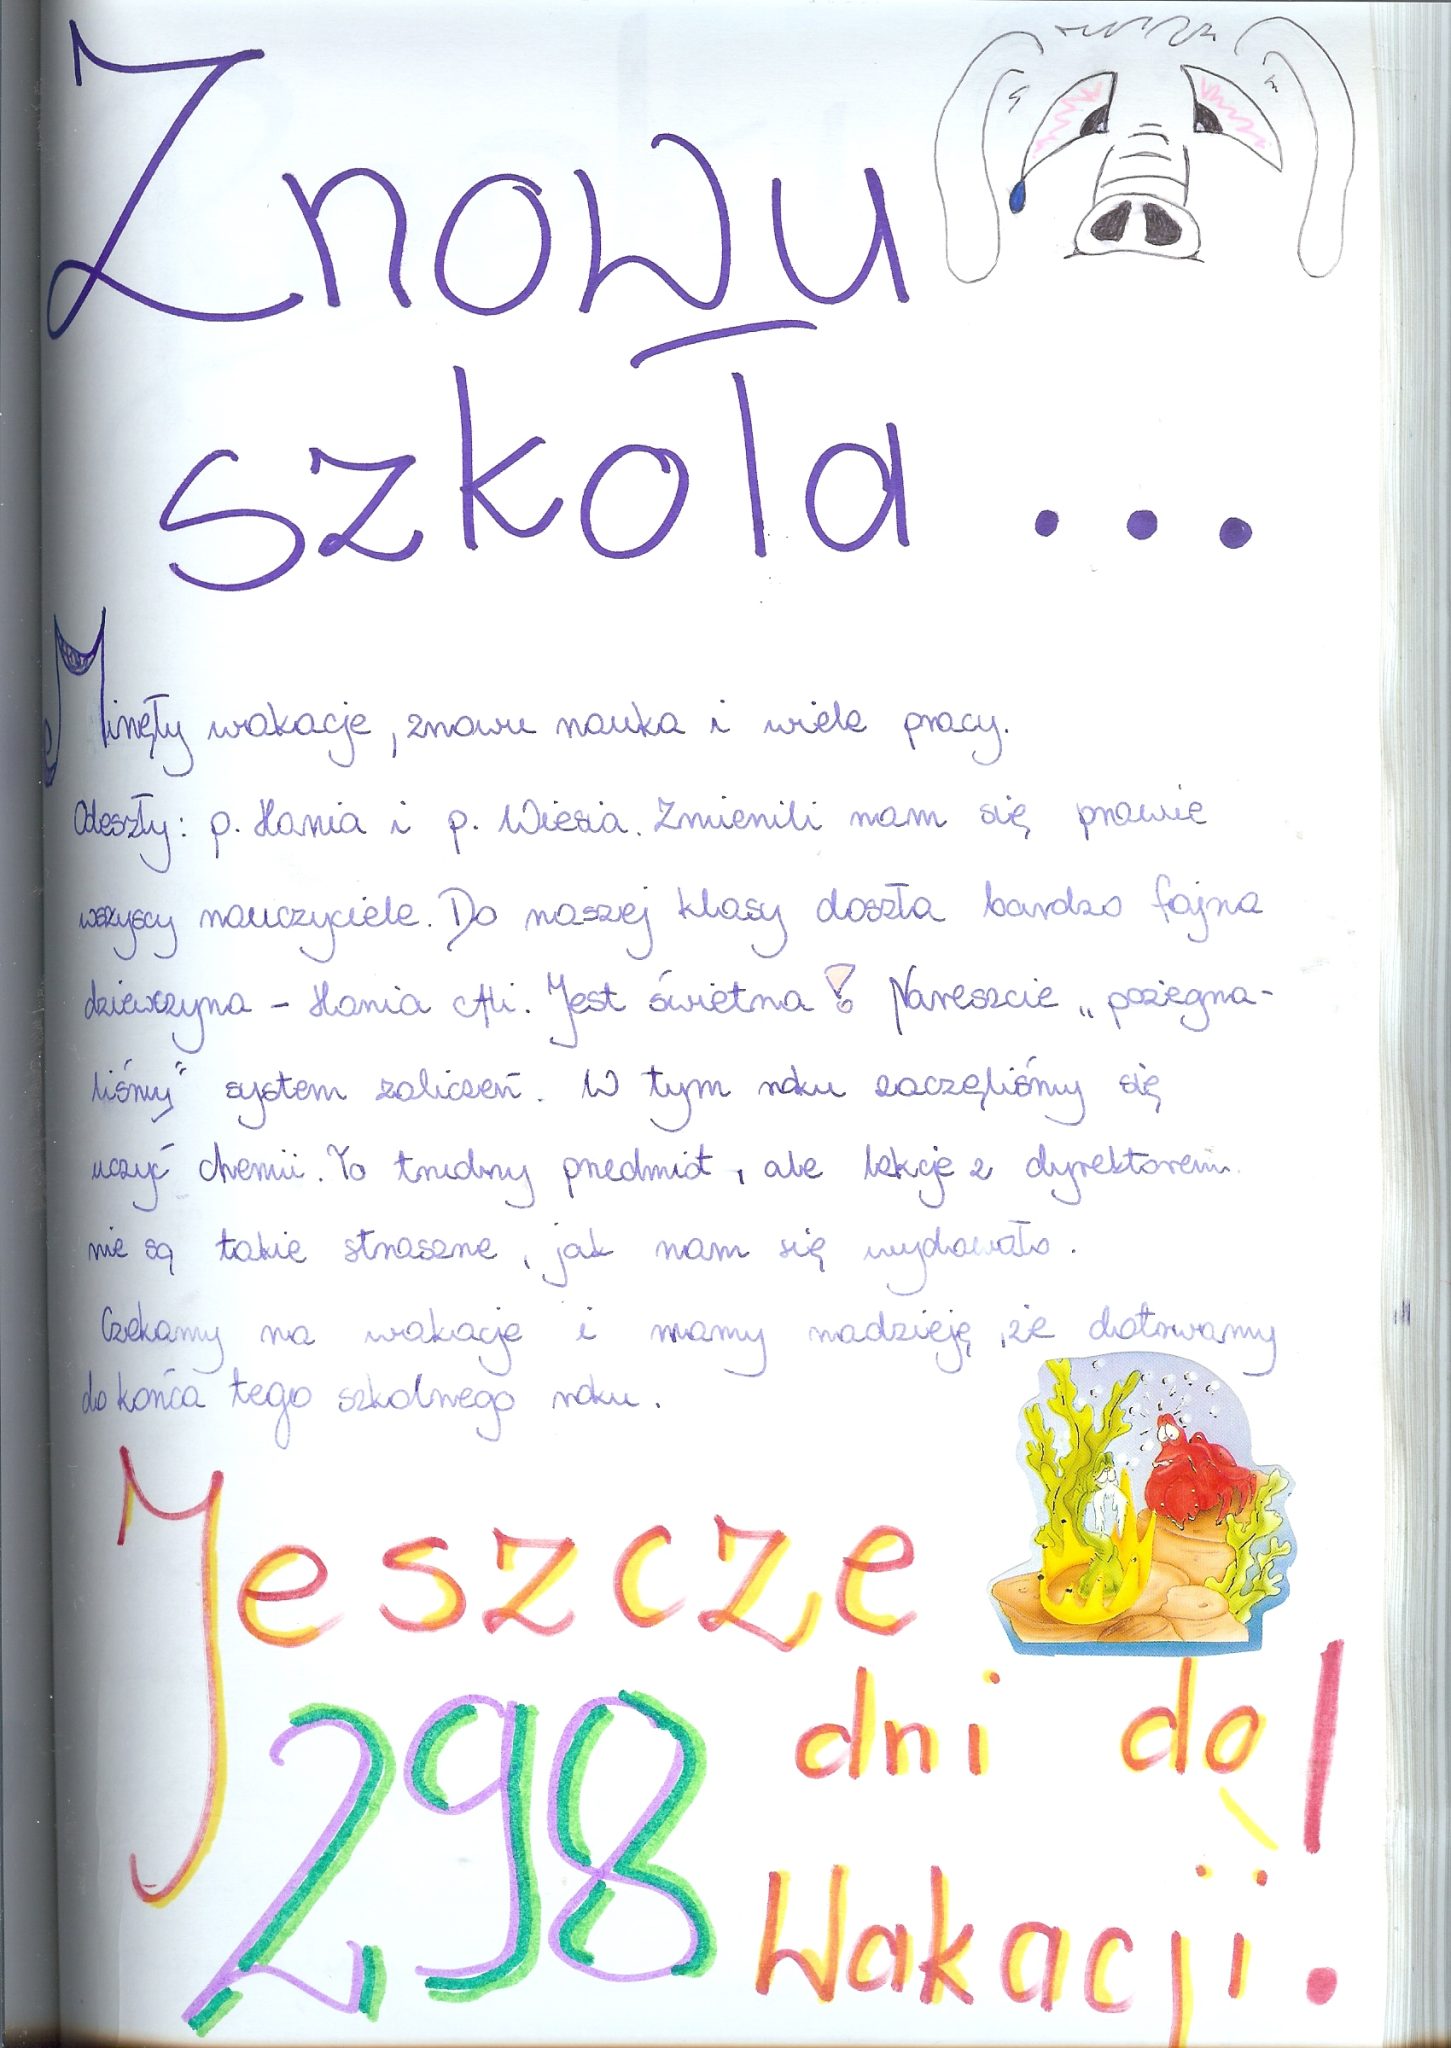 Znowu
szkoła...
Minęły wakacje, znowu nauka i wiele pracy.
Odeszły: p. Hania i p. Wiesia. Zmienili nam się prawie
wszyscy nauczyciele. Do naszej klasy doszła bardzo fajna
dziewczyna - Hania Ali. Jest świetna! Nareszcie „pożegna-
liśmy" system zaliczeń. W tym roku zaczęliśmy się
uczyć chemii. To trudny przedmiot, ale lekcje z dyrektorem
nie są takie straszne, jak nam się wydawało.
Czekamy na wakacje i mamy nadzieję, że dotrwamy
do końca tego szkolnego roku.
Jeszcze
298 dni do
Wakacji!